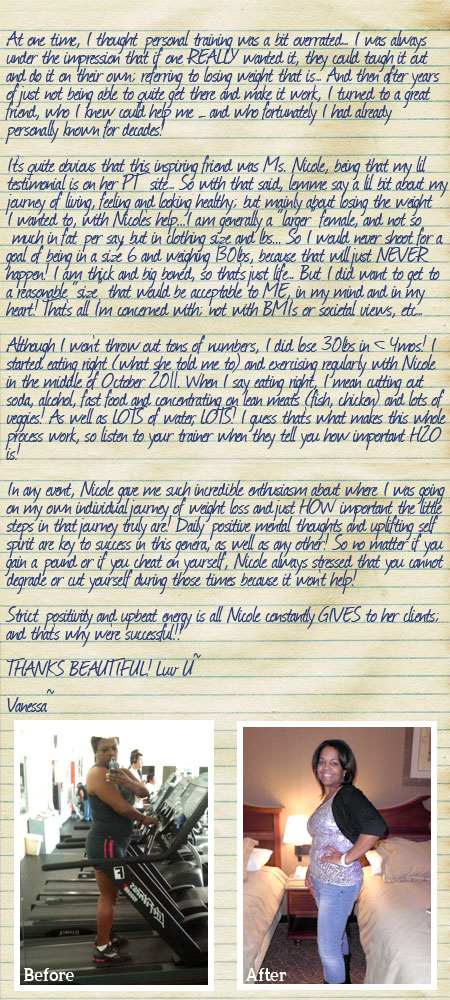 At one time, I thought personal training was a bit overrated... I was always
under the impression that if one REALLY wanted it, they could tough it out
and do it on their own; referring to losing weight that is... And then after years
of just not being able to quite get there and make it work, I turned to a great
friend, who I knew could help me ... and who fortunately I had already
personally known for decades!
It's quite obvious that this inspiring friend was Ms. Nicole, being that my lil
testimonial is on her PT site... So with that said, lemme say a lil bit about my
journey of living, feeling and looking healthy; but mainly about losing the weight
I wanted to, with Nicoles help...I am generally a "larger" female, and not so
much in fat per say but in clothing size and lbs... So I would never shoot for a
goal of being in a size 6 and weighing 130lbs, because that will just NEVER
happen! I am thick and big boned, so thats just life... But I did want to get to
a reasonable "size" that would be acceptable to ME, in my mind and in my
heart! Thats all Im concerned with; not with BMIs or societal views, etc...
Although I won't throw out tons of numbers, I did lose 30lbs in < 4mos! I
started eating right (what she told me to) and exercising regularly with Nicole
in the middle of October 2011. When I say eating right, I mean cutting out
soda, alcohol, fast food and concentrating on lean meats (fish, chicken) and lots of
veggies! As well as LOTS of water, LOTS! I guess thats what makes this whole
process work, so listen to your trainer when they tell you how important H2O
is!
In any event, Nicole gave me such incredible enthusiasm about where I was going
on my own individual journey of weight loss and just HOW important the little
steps in that journey truly are! Daily positive mental thoughts and uplifting self
spirit are key to success in this genera, as well as any other! So no matter if you
gain a pound or if you cheat on yourself, Nicole always stressed that you cannot
degrade or cut yourself during those times because it wont help!
Strict positivity and upbeat energy is all Nicole constantly GIVES to her clients;
and thats why were successful!!
THANKS BEAUTIFUL! Luv U~
Vanessa~
Before
After